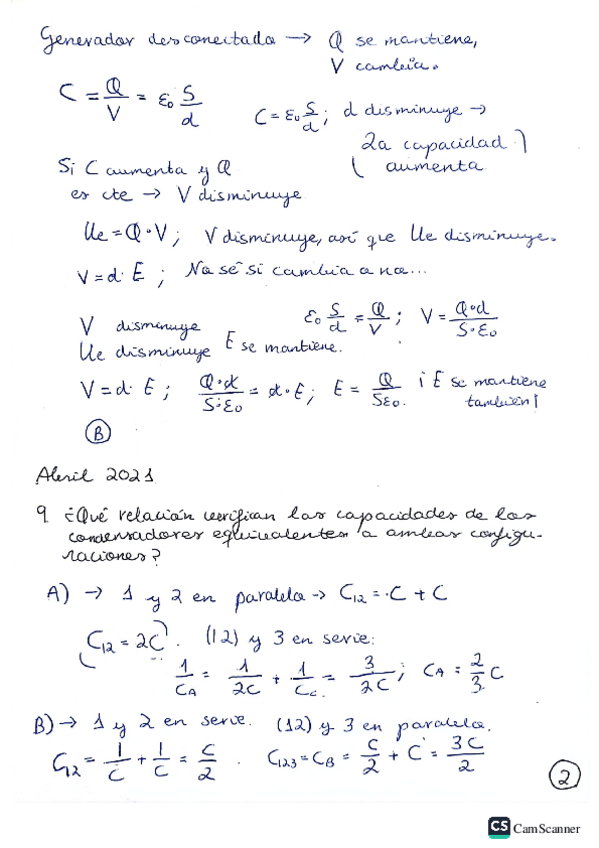 Generador desconectado → Q se mantiene,
V cambia.
C = Q/V = ε₀ S/d
C = ε₀ S/d; d disminuye →
la capacidad
aumenta
Si C aumenta y Q
es cte → V disminuye
Ue = Q·V; V disminuye, así que Ue disminuye.
V = d·E; No sé si cambia o no...
V disminuye
Ue disminuye E se mantiene.
ε₀ S/d = Q/V; V = Q·d/S·ε₀
V = d·E; Q·d/S·ε₀ = d·E; E = Q/Sε₀. ¡E se mantiene
también!
(B)
Abril 2021
9 ¿Qué relación verifican las capacidades de los
condensadores equivalentes a ambas configu-
raciones?
A) → 1 y 2 en paralelo → C₁₂ = C + C
C₁₂ = 2C. (12) y 3 en serie:
1/C_A = 1/2C + 1/C = 3/2C; C_A = 2/3 C
B) → 1 y 2 en serie. (12) y 3 en paralelo.
C₁₂ = 1/C + 1/C = C/2. C₁₂₃ = C_B = C/2 + C = 3C/2
2
CS CamScanner